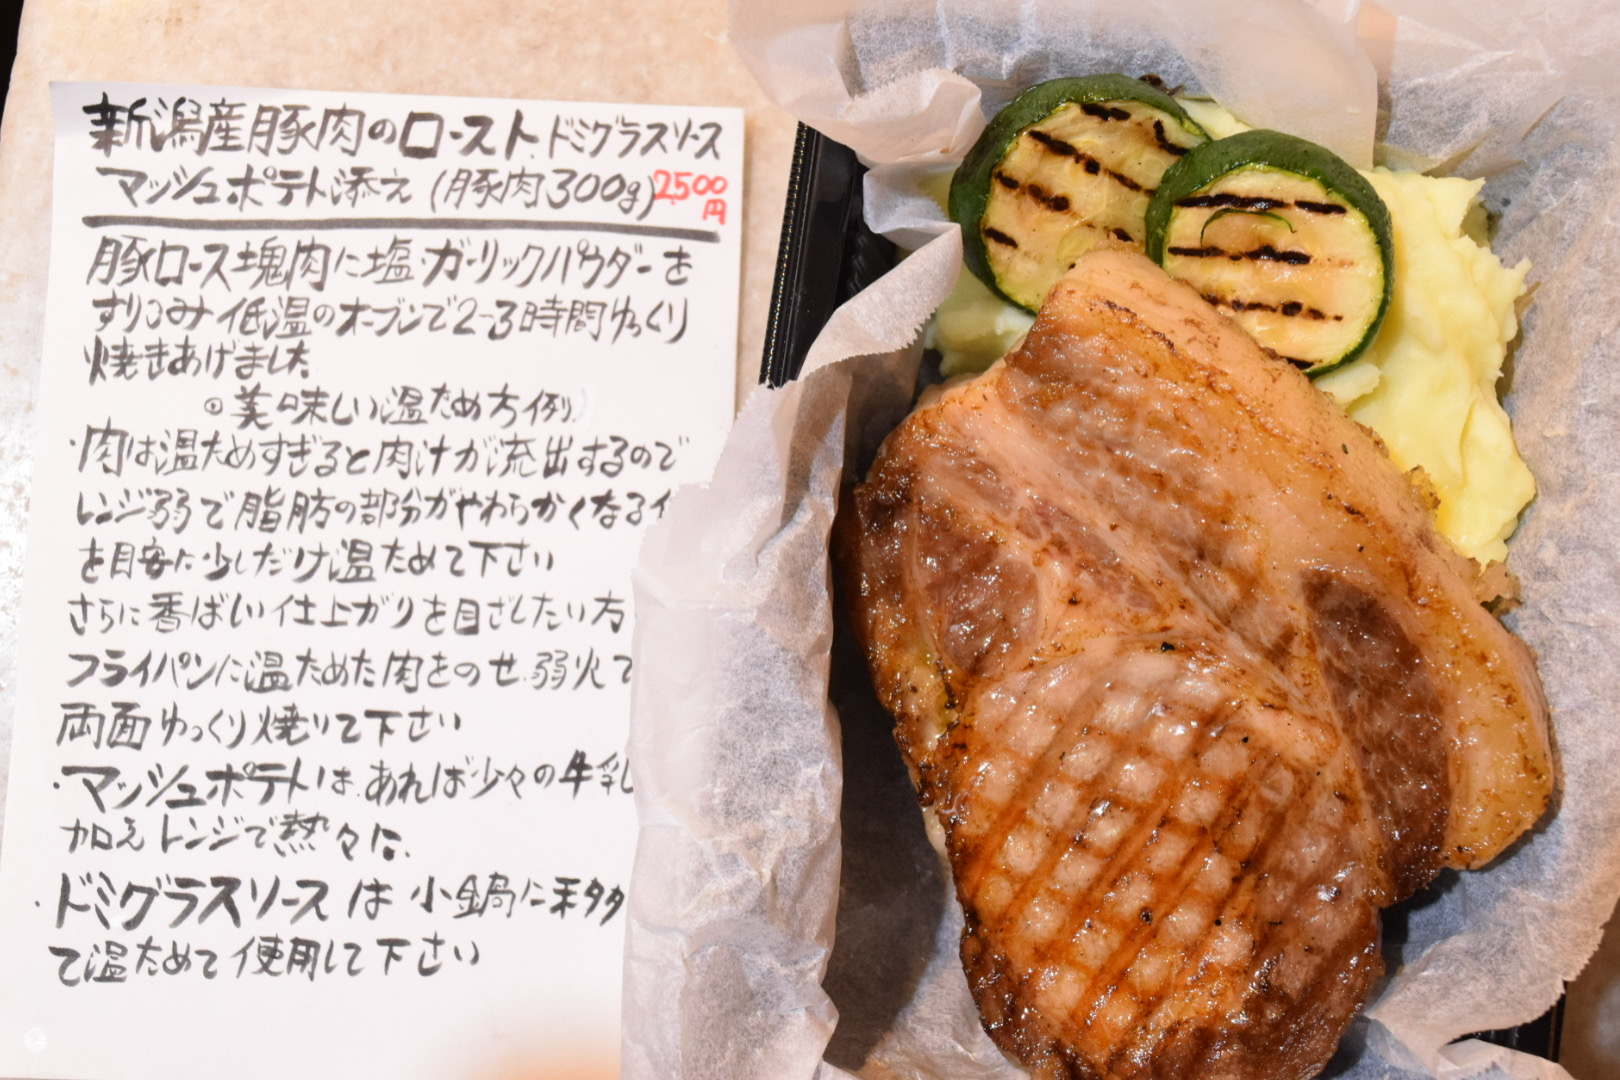 新潟産豚肉のロースト、ドミグラスソース
マッシュポテト添え(豚肉300g)2,500
円
豚ロース塊肉に塩・ガーリックパウダーを
すりこみ低温のオーブンで2-3時間ゆっくり
焼きあげました
◎美味しい温ため方例)
・肉は温ためすぎると肉汁が流出するので
レンジ弱で脂肪の部分がやわらかくなる
を目安に少しだけ温ためて下さい
さらに香ばしい仕上がりを目ざしたい方
フライパンに温ためた肉をのせ、弱火で
両面ゆっくり焼いて下さい
・マッシュポテトは、あれば少々の牛乳
加えレンジで熱々に。
・ドミグラスソースは小鍋に移
て温ためて使用して下さい